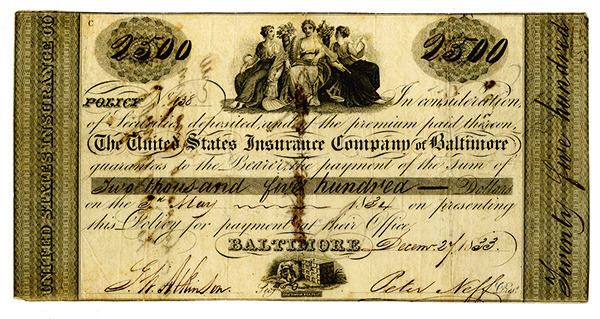 C
2500 2500
POLICY No.
In consideration
of Securities deposited, and of the premium paid thereon,
The United States Insurance Company of Baltimore
guarantees to the Bearer the payment of the sum of
Two thousand five hundred — Dollars
on the May 1834 on presenting
this Policy for payment at their Office,
BALTIMORE Decemr. 27 1833.
Atkinson. Secy. Peter Neff Prest.
UNITED STATES INSURANCE CO
Twenty five hundred